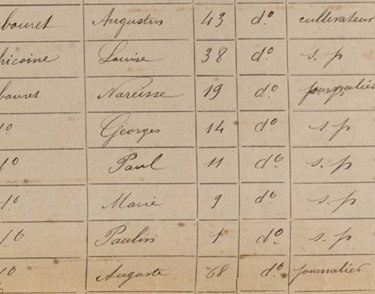 bouret Augustin 43 do cultivateur
hicoine Louise 38 do s. p
bouret Narcisse 19 do journalier
do Georges 14 do s. p
do Paul 11 do s. p
do Marie 9 do s. p
do Paulin 1 do s. p
do Auguste 68 do journalier